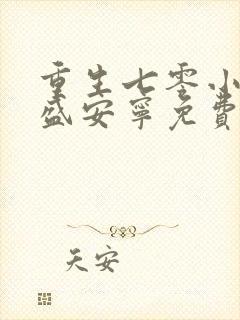 重生七零小
盛安宁免费
天安